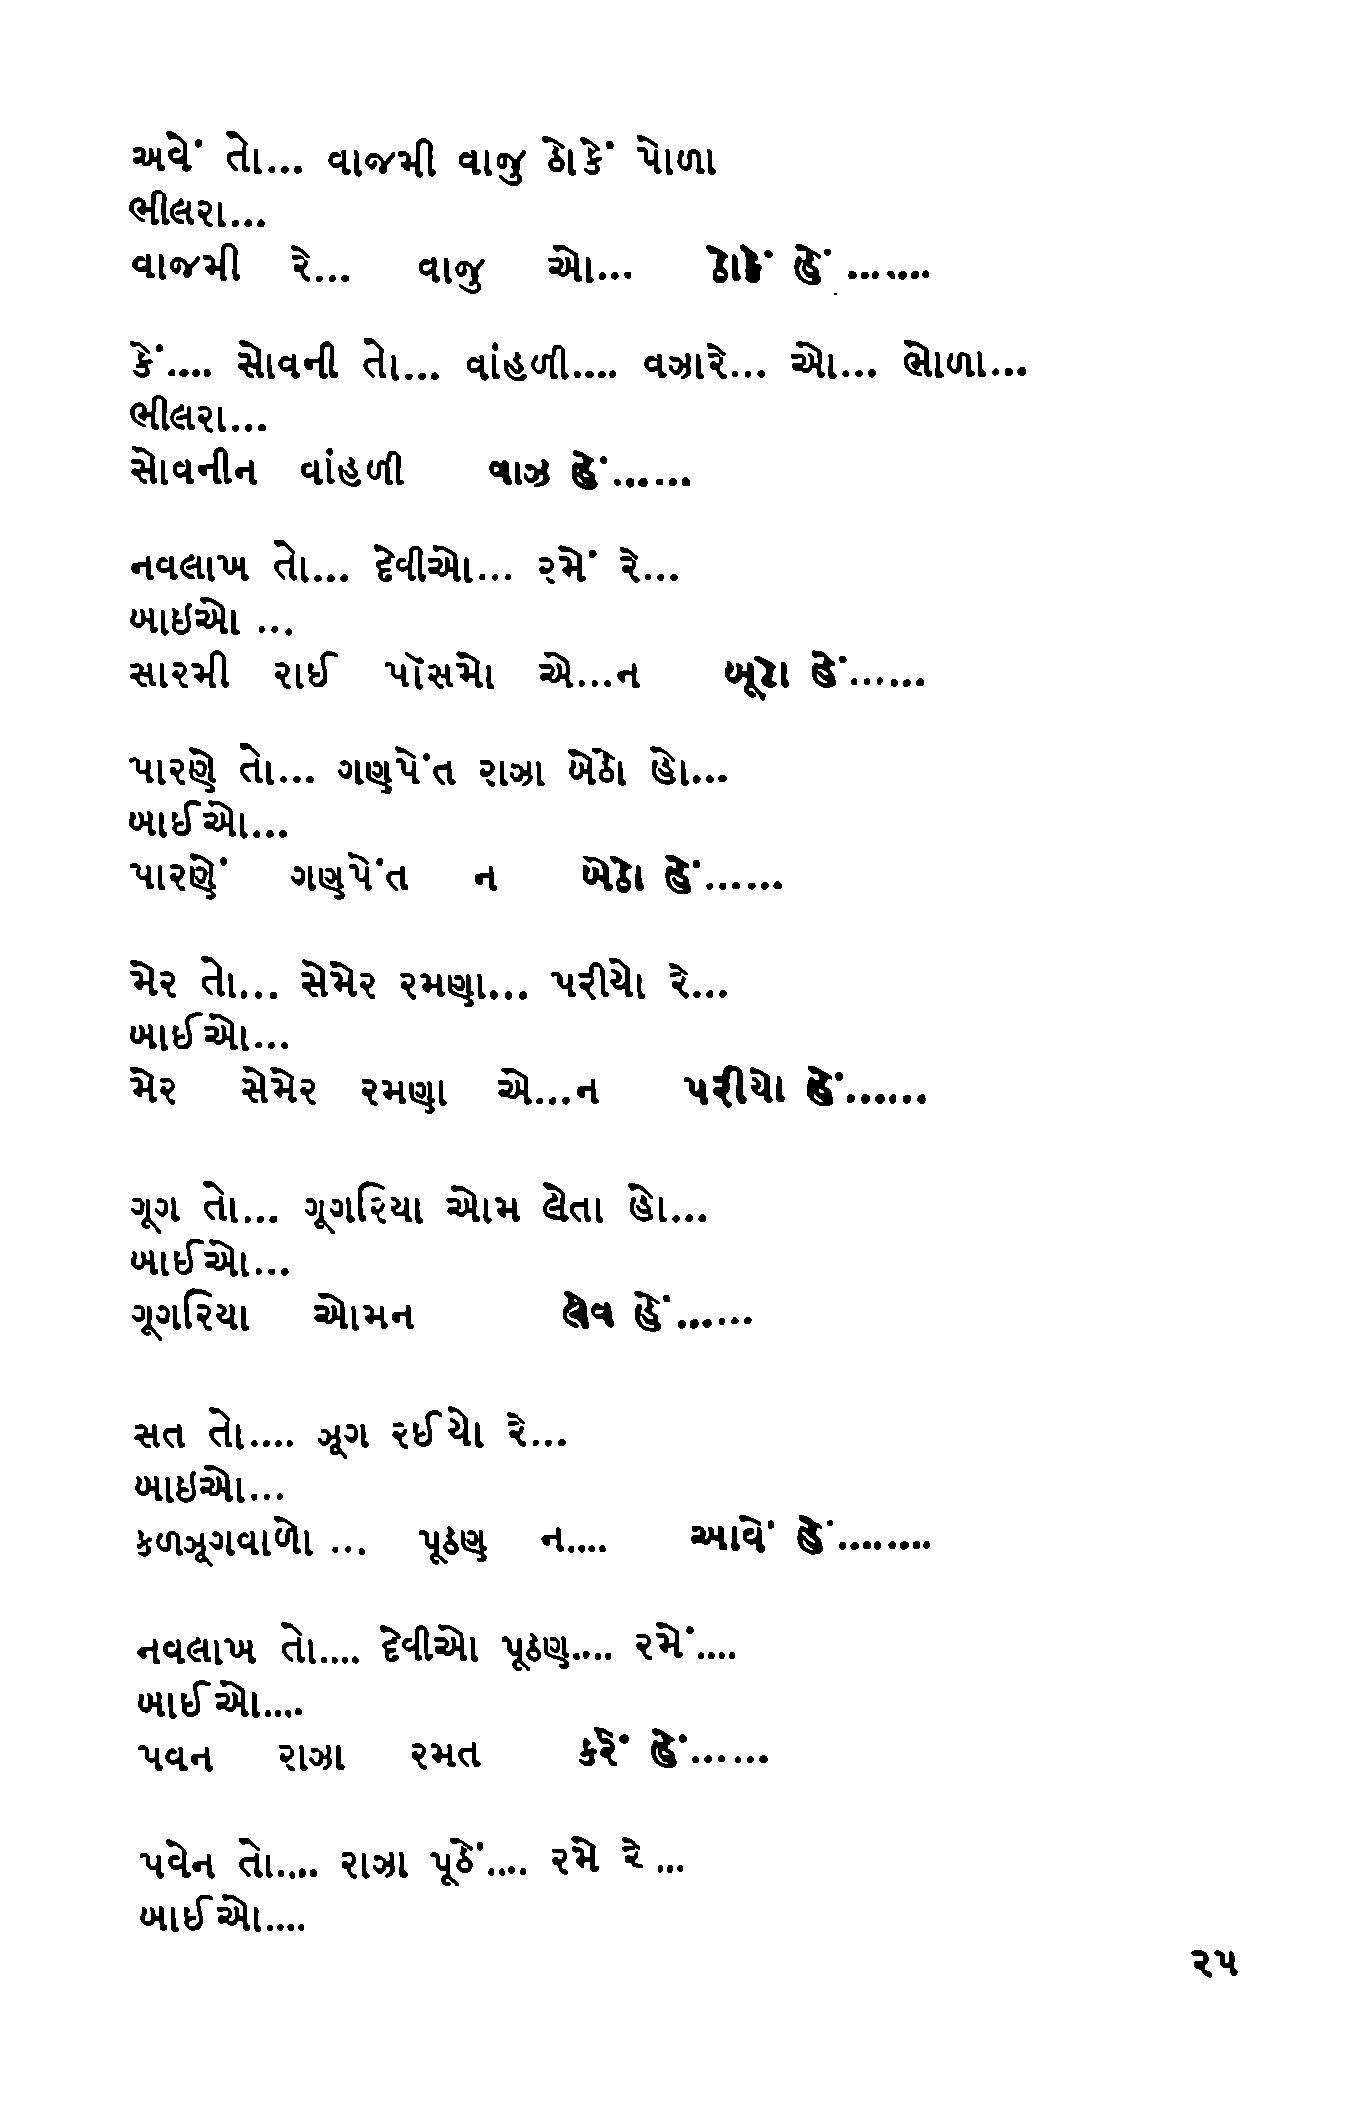 અવેં તો... વાજમી વાજુ ઠોકેં પોળા
ભીલરા...
વાજમી રે... વાજુ ઓ... ઠોકેં હેં.......
કેં.... સોવની તો... વાંહળી.... વઝારે... ઓ... ભોળા...
ભીલરા...
સોવનીન વાંહળી વાઝ હેં......
નવલાખ તો... દેવીઓ... રમેં રે...
બાઇઓ ...
સારમી રાઈ પૉસમો એ...ન ખૂટા હેં......
પારણે તો... ગણપેંત રાઝા બેઠો હો...
બાઈઓ...
પારણેં ગણપેંત ન બેઠો હેં......
મેર તો... સેમેર રમણા... પરીયો રે...
બાઈઓ...
મેર સેમેર રમણા એ...ન પરીયો હેં......
ગૂગ તો... ગૂગરિયા ઓમ લેતા હો...
બાઈઓ...
ગૂગરિયા ઓમન લેવ હેં......
સત તો.... ઝૂગ રઈયો રે...
બાઇઓ...
કળઝૂગવાળો ... પૂઠણ ન.... આવેં હેં........
નવલાખ તો.... દેવીઓ પૂઠણ.... રમેં....
બાઈઓ....
પવન રાઝા રમત કરેં હેં......
પવેન તો.... રાઝા પૂઠેં.... રમે રે ...
બાઈઓ....
૨૫